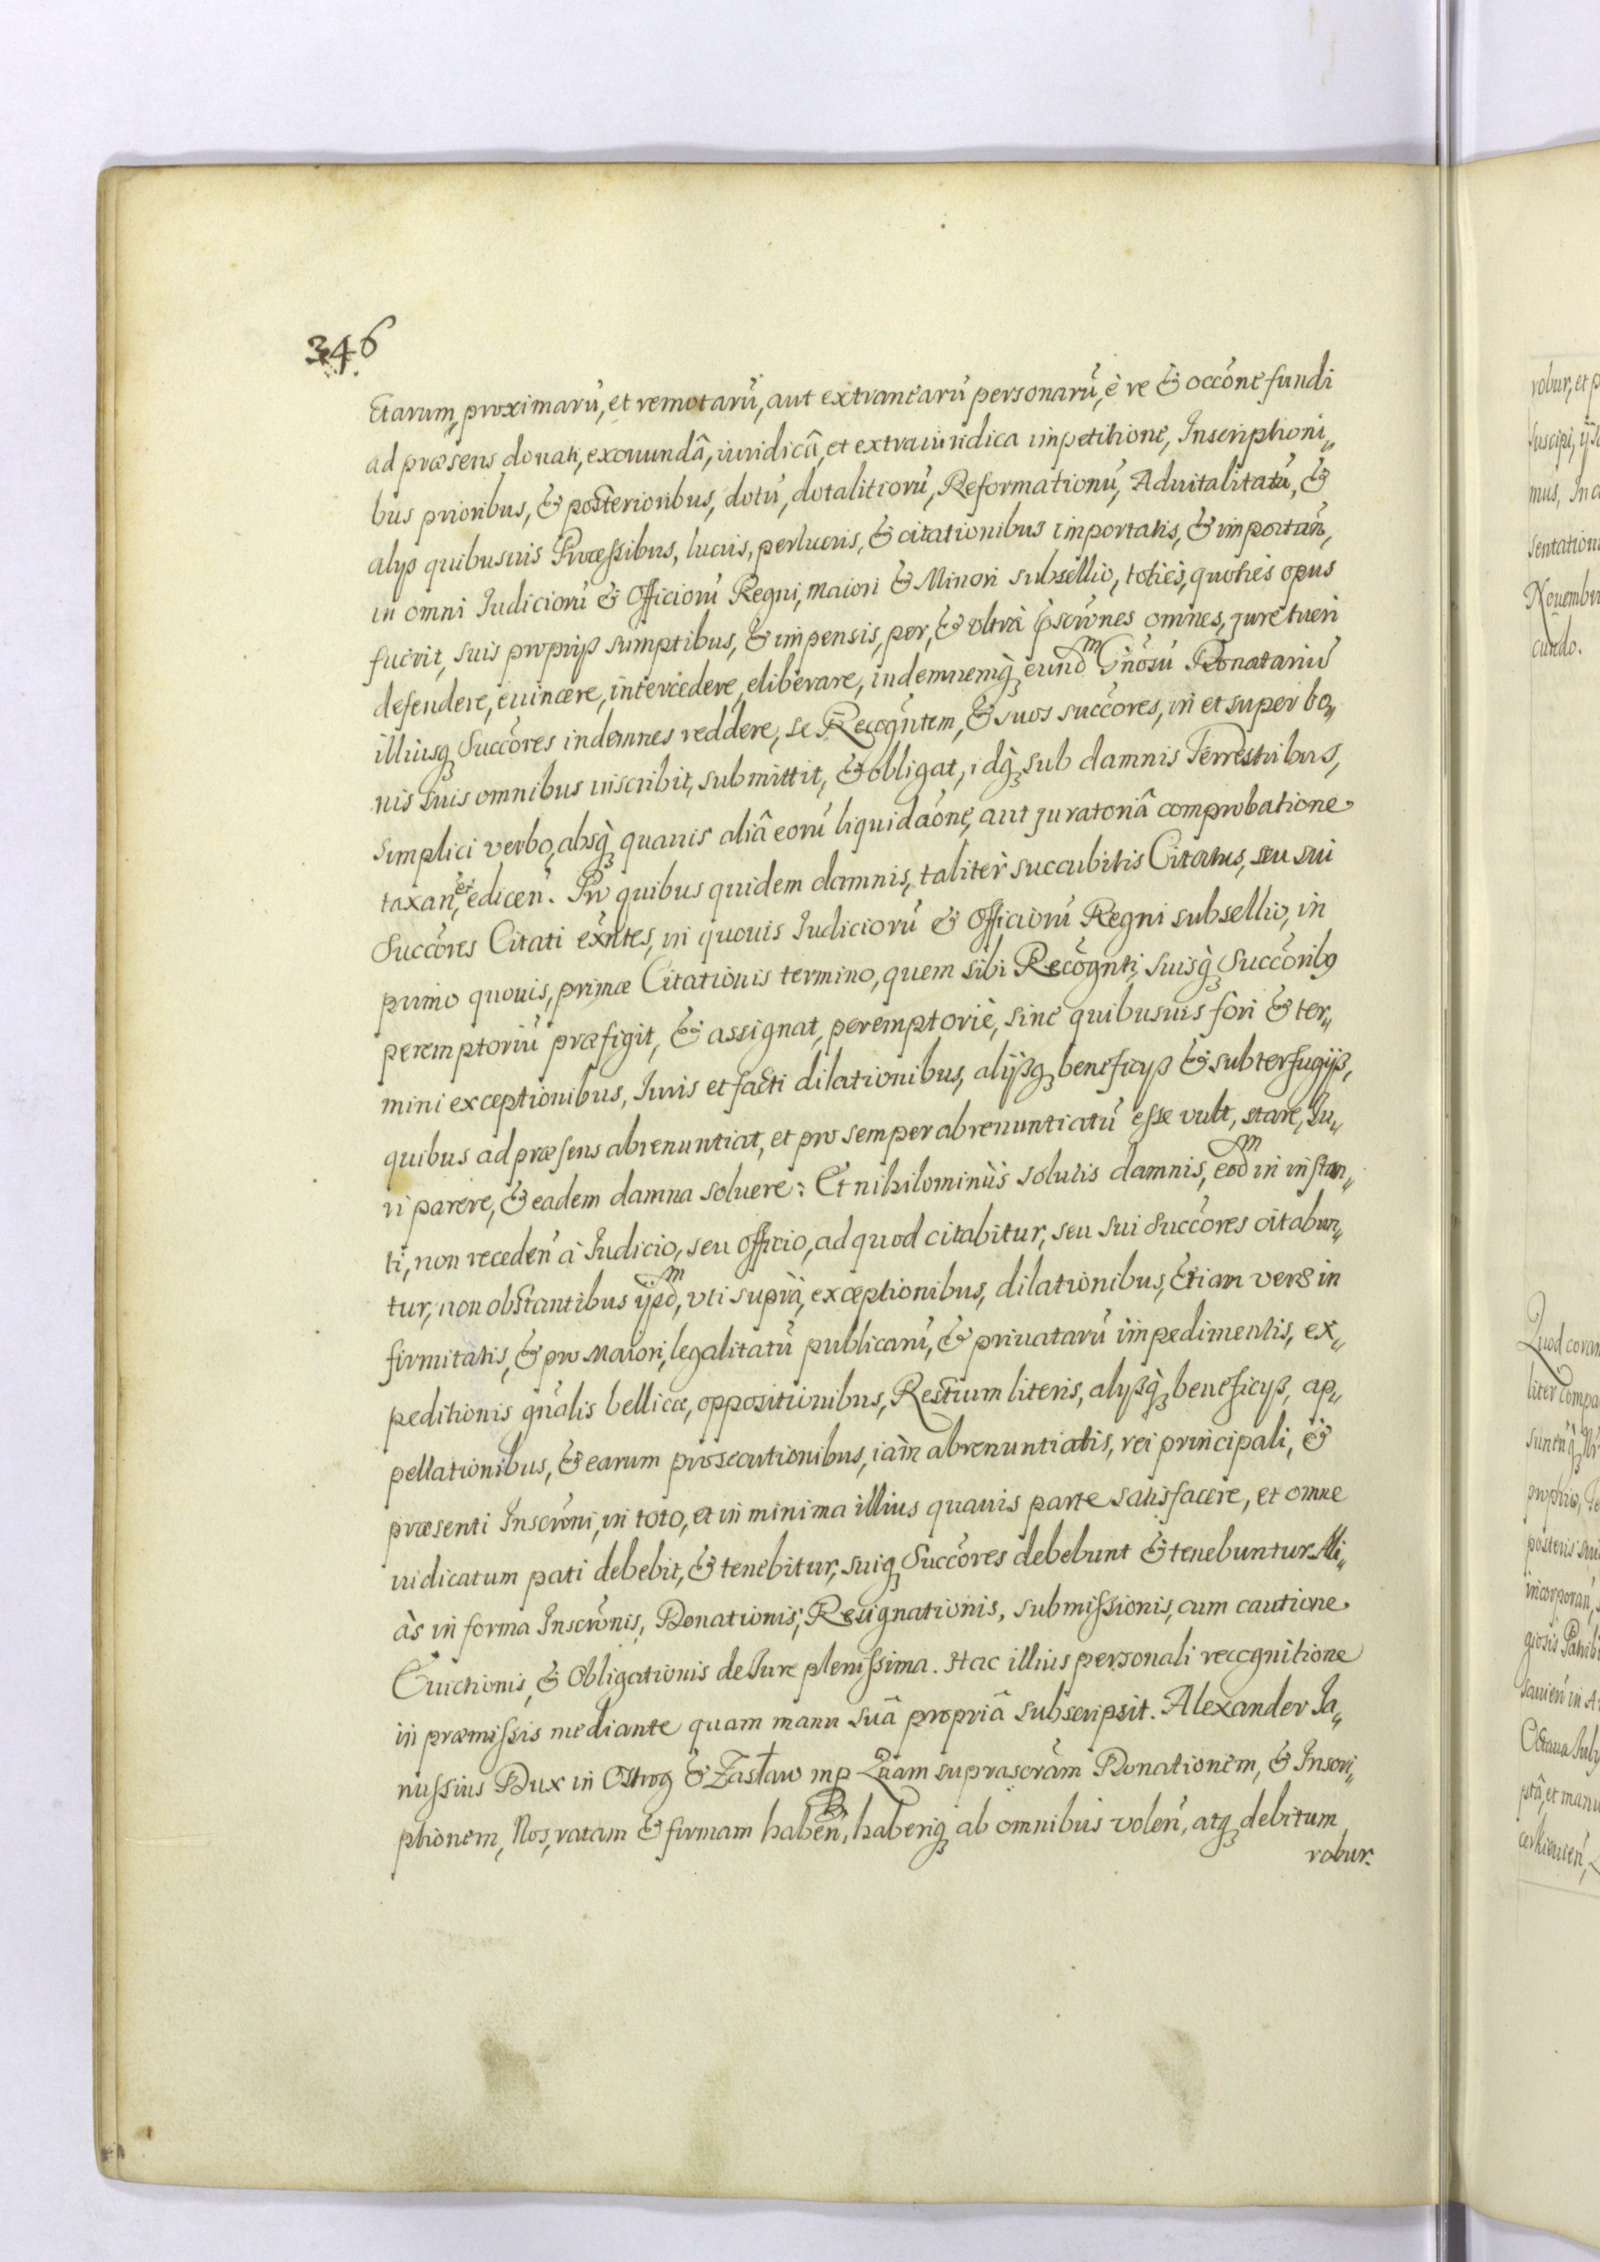 346
ctarum, proximarũ, et remotarũ, aut extranearũ personarũ, è re & occõne fundi
ad præsens donati, exoriundâ, iuridicâ, et extraiuridica impetitione, Inscriptioni„
bus prioribus, & posterioribus, dotũ, dotalitiorũ, Reformationũ, Aduitalitatũ, &
alys quibusuis Processibus, lucris, perlucris, & citationibus importatis, & importañ,
in omni Iudiciorũ & Officiorũ Regni, maiori & Minori subsellio, toties, quoties opus
fuerit, suis proprijs sumptibus, & impensis, per, & vltrà pscrõnes omnes, jure tueri
defendere, euincere, intercedere, eliberare, indemnemq̀ȝ eund̃m Gñosũ Donatariũ
illiusqȝ Succõres indemnes reddere, se Recogñtem, & suos succõres, in et super bo„
nis suis omnibus inscribit, submittit, & obligat, idq̀ȝ sub damnis Terrestribus,
simplici verbo, absq̀ȝ quauis aliâ eorũ liquidaõne, aut juratoriâ comprobatione
taxañ, et ediceñ. Pro quibus quidem damnis, taliter succubitis Citatus, seu sui
Succõres Citati exñtes, in quouis Iudiciorũ & Officiorũ Regni subsellio, in
primo quouis, primæ Citationis termino, quem sibi Recogñti, suisq̀ȝ Succõribȝ
peremptoriũ præfigit, & assignat, peremptoriè, sine quibusuis fori & ter„
mini exceptionibus, Iuris et facti dilationibus, alijsqȝ beneficys & subterfugijs,
quibus ad præsens abrenuntiat, et pro semper abrenuntiatũ esse vult, stare, Iu„
ri parere, & eadem damna soluere: Et nihilominùs solutis damnis, eod̃m in instan„
ti, non recedeñ à Iudicio, seu Officio, ad quod citabitur, seu sui Succõres citabun„
tur, non obstantibus ijsd̃m, vti suprà, exceptionibus, dilationibus, Etiam veræ in
firmitatis, & pro Maiori, legalitatũ publicarũ, & priuatarũ impedimentis, ex„
peditionis gñalis bellicæ, oppositionibus, Restium literis, alysq̀ȝ beneficys, ap„
pellationibus, & earum prosecutionibus, iàm abrenuntiatis, rei principali, &
præsenti Inscrõni, in toto, et in minima illius quauis parte satisfacere, et omne
iudicatum pati debebit, & tenebitur, suiqȝ Succõres debebunt & tenebuntur. Ali„
às in forma Inscrõnis, Donationis, Resignationis, submissionis, cum cautione
Euictionis, & Obligationis de Iure plenissima. Hac illius personali recognitione
in præmissis mediante quam manu suâ propriâ subscripsit. Alexander Ia„
nussius Dux in Ostrog & Zasław mp Quam suprascrãm Donationem, & Inscri„
ptionem, Nos, ratam & firmam habeñ, haberiqȝ ab omnibus voleñ, atqȝ debitum
robur.